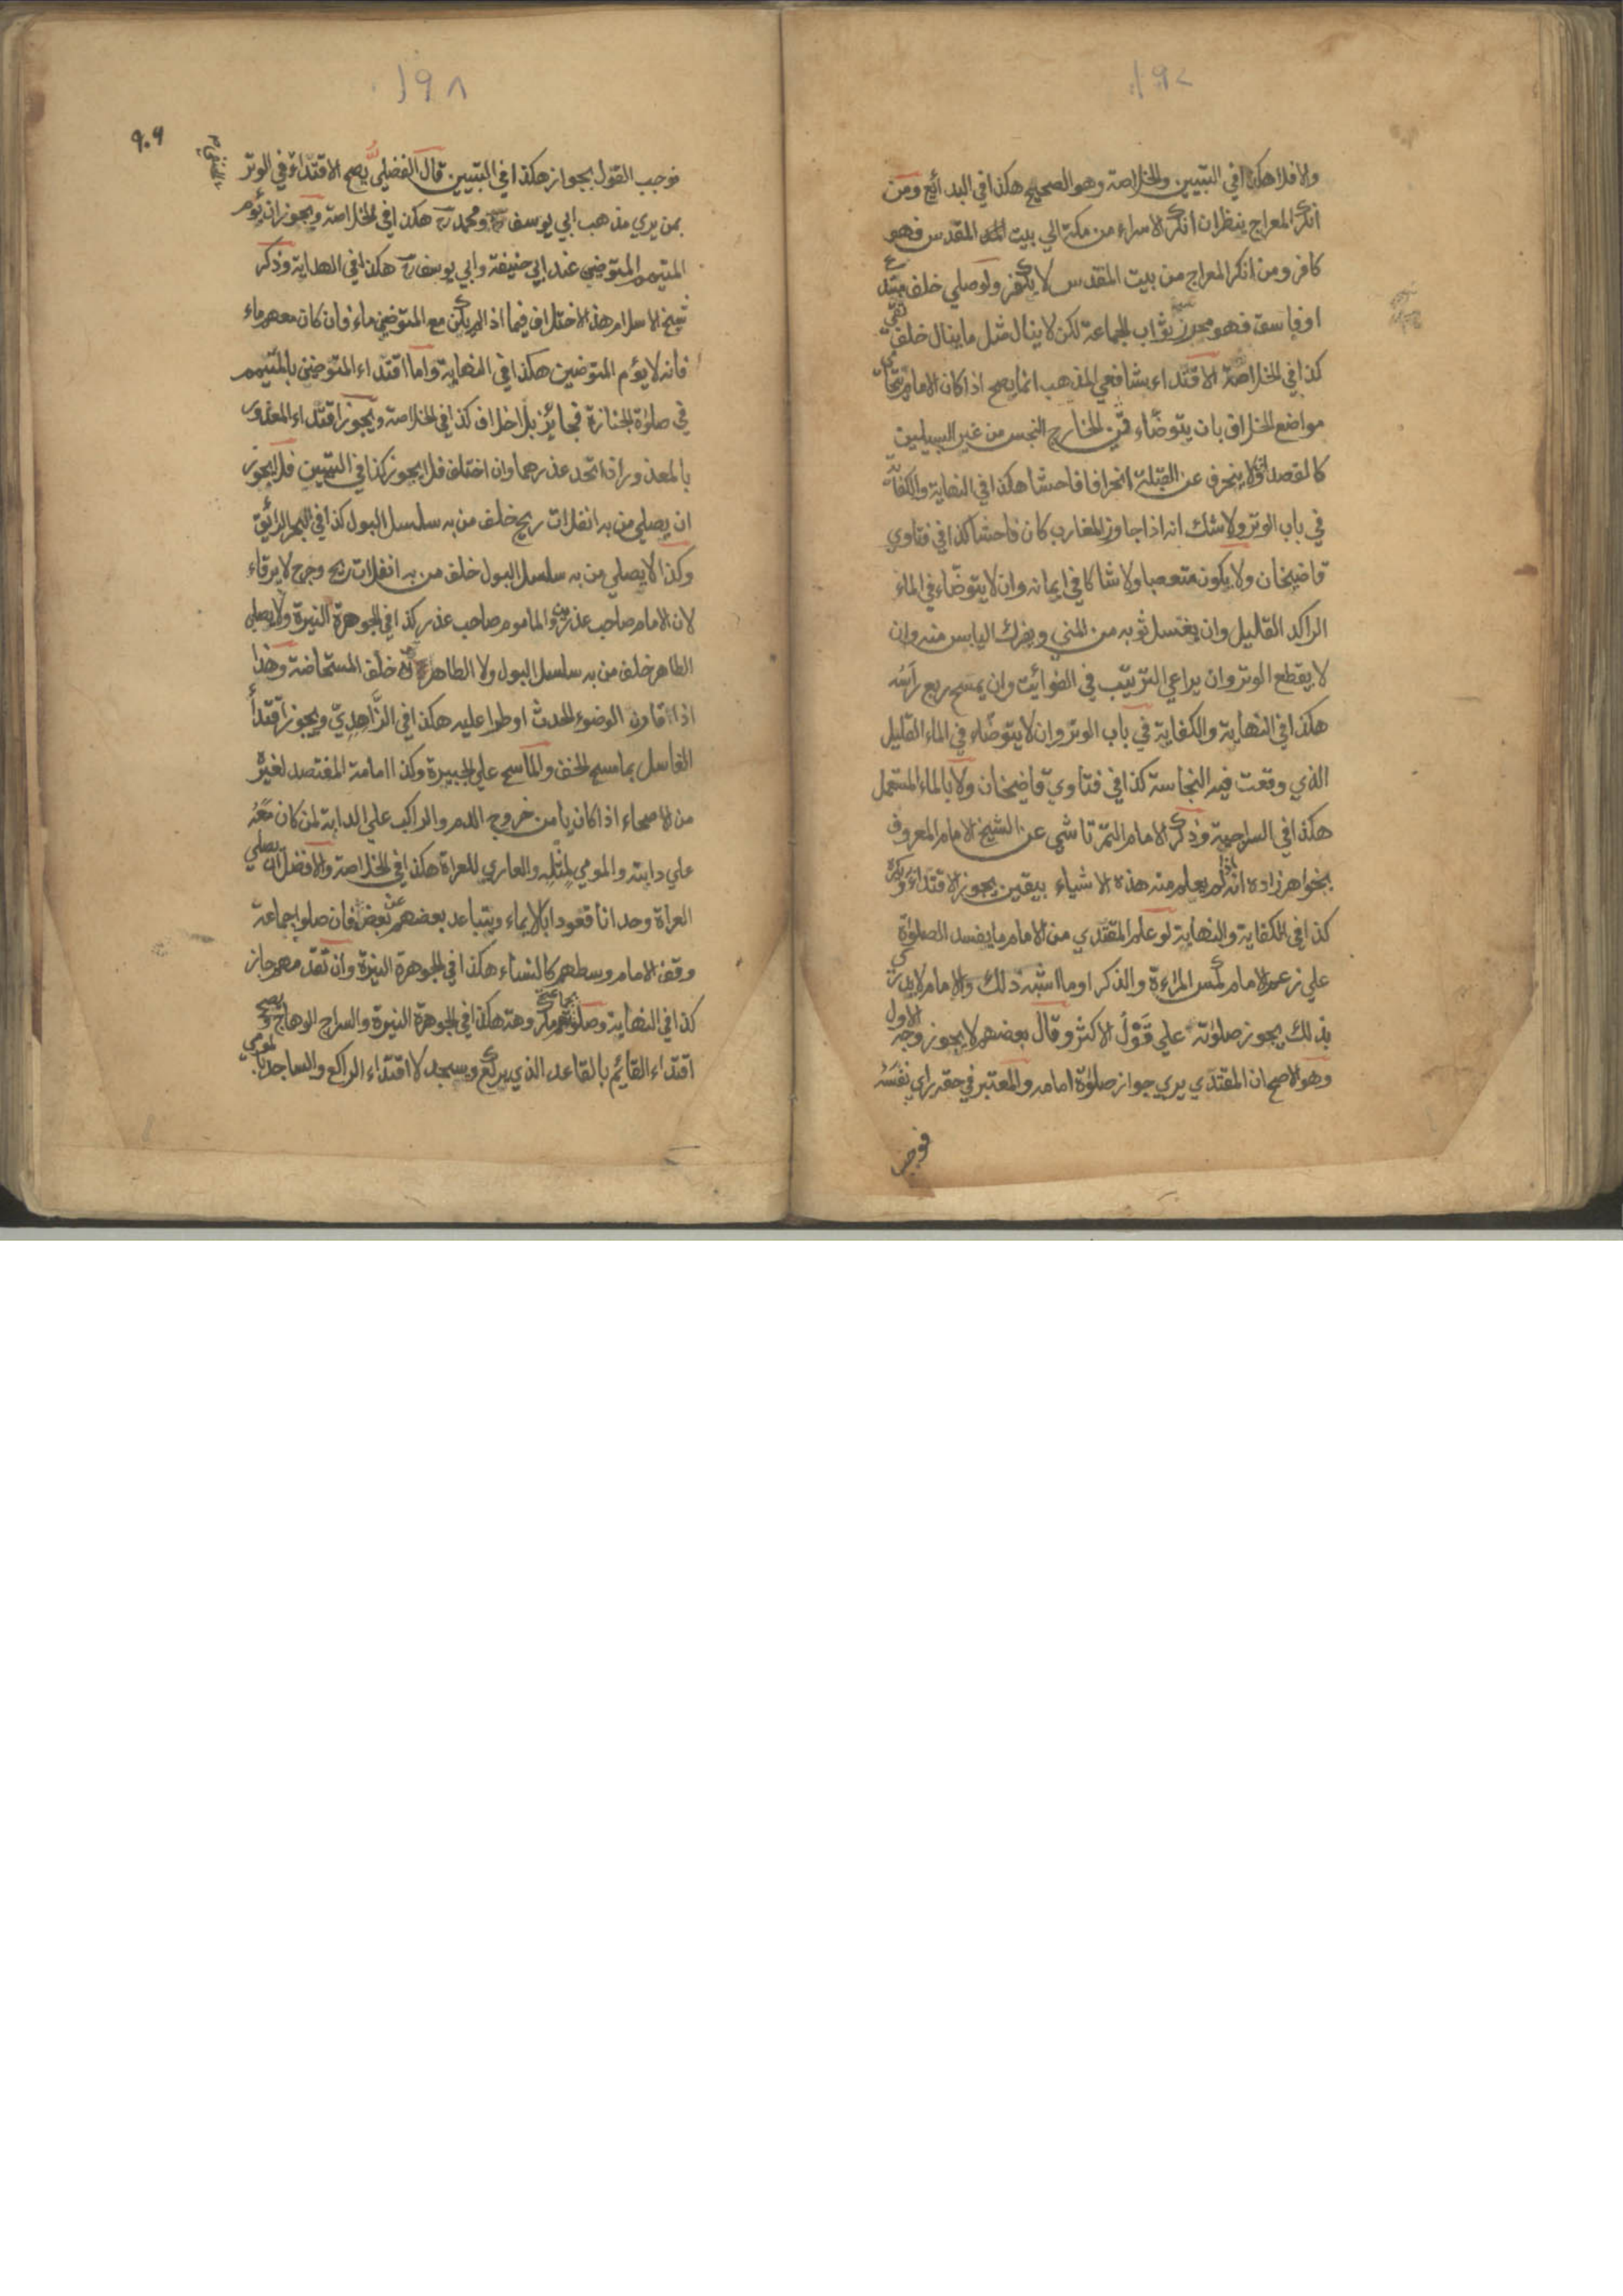 ١٩٧
والا فلا هكذا في التبيين والخلاصة وهو الصحيح هكذا في البدائع ومن
انكر المعراج ينظر ان انكر الاسراء من مكة الي بيت المقدس فهو
كافر ومن انكر المعراج من بيت المقدس لا يكفر ولو صلي خلف مبتدع
او فاسق فهو محرز ثواب الجماعة لكن لا ينال مثل ما ينال خلف تقي
كذا في الخلاصة الاقتداء بشافعي المذهب انما يصح اذا كان الامام يتحامي
مواضع الخلاف بان يتوضاء من الخارج النجس من غير السبيلين
كالفصد ولا ينحرف عن القبلة انحرافا فاحشا هكذا في النهاية والكفاية
في باب الوتر ولا شك انه اذا جاوز المغارب كان فاحشا كذا في فتاوي
قاضيخان ولا يكون متعصبا ولا شاكا في ايمانه وان لا يتوضاء في الماء
الراكد القليل وان يغسل ثوبه من المني ويفرك اليابس منه وان
لا يقطع الوتر وان يراعي الترتيب في الفوائيت وان يمسح ربع راسه
هكذا في النهاية والكفاية في باب الوتر وان لا يتوضاء في الماء القليل
الذي وقعت فيه النجاسة كذا في فتاوي قاضيخان ولا بالماء المستعمل
هكذا في السراجية وذكر الامام التمرتاشي عن الشيخ الامام المعروف
بخواهرزاده انه اذا لم يعلم منه هذه الاشياء بيقين يجوز الاقتداء ويكره
كذا في الكفاية والنهاية لو علم المقتدي من الامام ما يفسد الصلوة
علي زعم الامام كمس المراءة والذكر او ما اشبه ذلك والامام لا يدري
بذلك يجوز صلوته علي قول الاكثر وقال بعضهم لا يجوز وجه الاول
وهو الاصح ان المقتدي يري جواز صلوة امامه والمعتبر في حقه راي نفسه
فوجب
١٩٨
فوجب القول بجوازه هكذا في التبيين قال الفضلي يصح الاقتداء في الوتر
بمن يري مذهب ابي يوسف رح ومحمد رح هكذا في الخلاصة ويجوز ان يؤم
المتيمم المتوضي عند ابي حنيفة وابي يوسف رح هكذا في الهداية وذكر
شيخ الاسلام هذا الاختلاف فيما اذا لم يكن مع المتوضي ماء فان كان معهم ماء
فانه لا يؤم المتوضين هكذا في النهاية واما اقتداء المتوضي بالمتيمم
في صلوة الجنازة فجائز بلا خلاف كذا في الخلاصة ويجوز اقتداء المعذور
بالمعذور ان اتحد عذرهما وان اختلف فلا يجوز كذا في التبيين فلا يجوز
ان يصلي من به انفلات ريح خلف من به سلسل البول كذا في البحر الرائق
وكذا لا يصلي من به سلسل البول خلف من به انفلات ريح وجرح لا يرقاء
لان الامام صاحب عذرين والماموم صاحب عذر كذا في الجوهرة النيرة ولا يصلي
الطاهر خلف من به سلسل البول ولا الطاهرة خلف المستحاضة وهذا
اذا قارن الوضوء الحدث او طرا عليه هكذا في الزاهدي ويجوز اقتدأ
الغاسل بماسح الخف والماسح علي الجبيرة وكذا امامة المفتصد لغيره
من الاصحاء اذا كان يامن خروج الدم والراكب علي الدابة لمن كان معه
علي دابته والمومي لمثله والعاري للعراة هكذا في الخلاصة والافضل ان يصلي
العراة وحدانا قعودا بالايماء ويتباعد بعضهم عن بعض فان صلوا جماعة
وقف الامام وسطهم كالنساء هكذا في الجوهرة النيرة وان تقدمهم جاز
كذا في النهاية وصلوتهم بجماعة مكروهة هكذا في الجوهرة النيرة والسراج الوهاج ويصح
اقتداء القائيم بالقاعد الذي يركع ويسجد لا اقتداء الراكع والساجد بالمومي